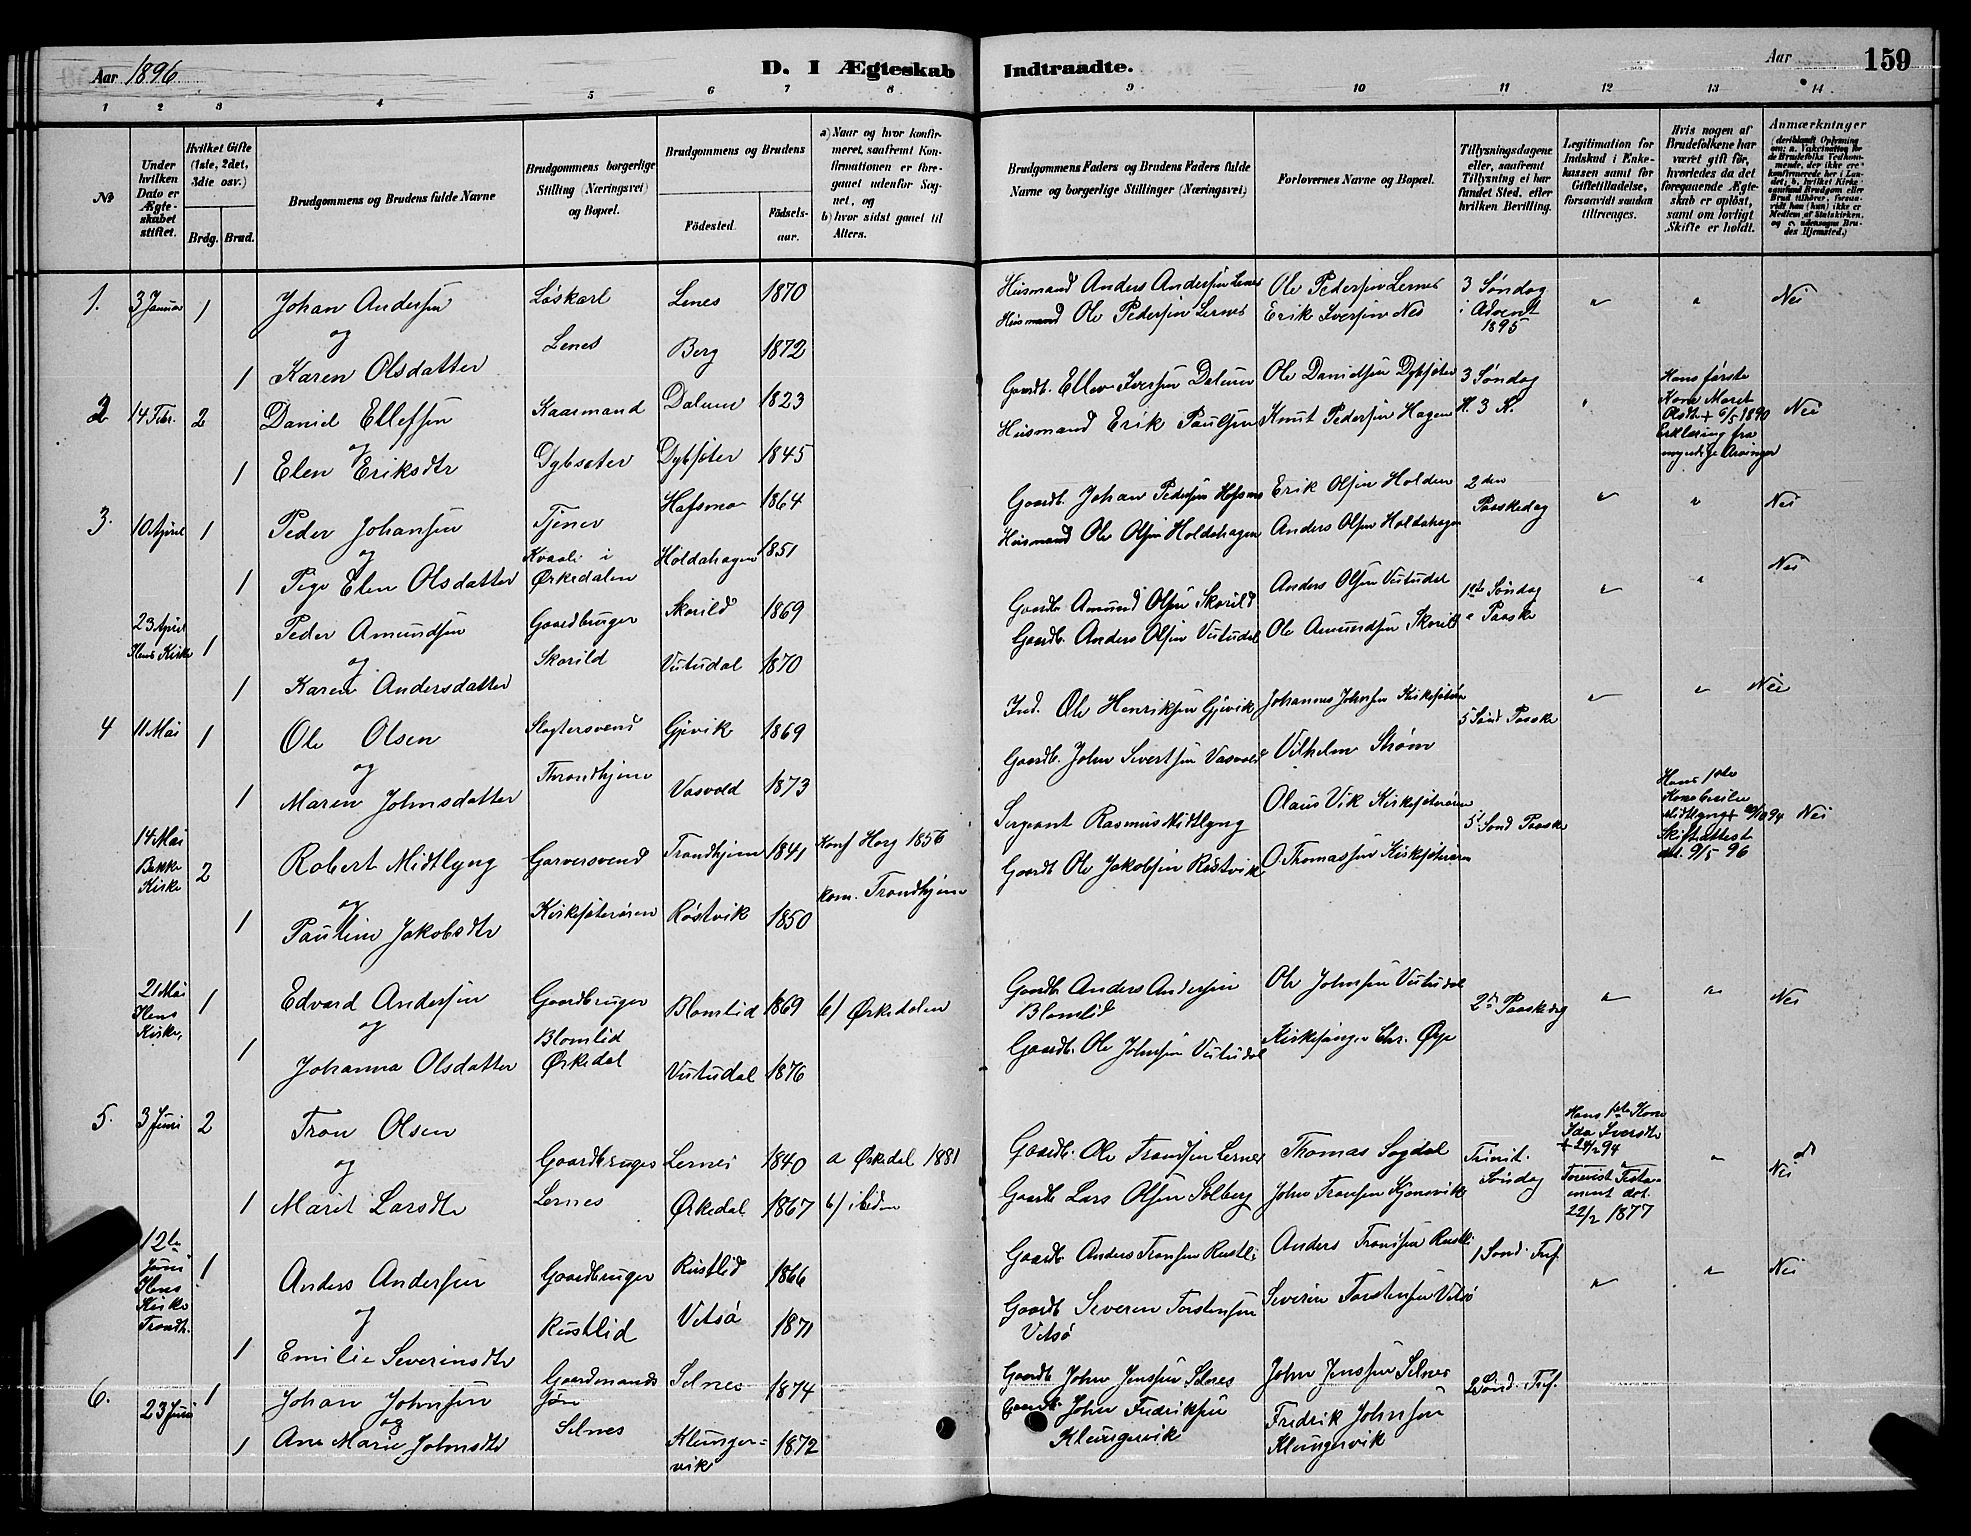 Aar 1896
D. I Ægteskab Indtraadte.
Aar
159
1 2 3 4 5 6 7 8 9 10 11 12 13 14
No
Under hvilken Dato er Ægteskabet stiftet.
Hvilket Gifte (1ste, 2det, 3die osv.)
Brdg. Brud.
Brudgommens og Brudens fulde Navne
Brudgommens borgerlige Stilling (Næringsvei) og Bopæl.
Brudgommens og Brudens
Fødested.
Fødselsaar.
a) Naar og hvor konfirmeret, saafremt Konfirmationen er foregaaet udenfor Sognet, og
b) hvor sidst gaaet til Alters.
Brudgommens Faders og Brudens Faders fulde Navne og borgerlige Stillinger (Næringsvei)
Forlovernes Navne og Bopæl.
Tillysningsdagene eller, saafremt Tillysning ei har fundet Sted, efter hvilken Bevilling.
Legitimation for Indskud i Enkekassen samt for Giftetilladelse, forsaavidt saadan tiltrænges.
Hvis nogen af Brudefolkene har været gift før, hvorledes da det foregaaende Ægteskab er opløst, samt om lovligt Skifte er holdt.
Anmærkninger
1. 3 Januar 1 Johan Andersen Løskarl Lenes 1870 Husmand Anders Andersen Lenes Ole Pedersen Lernes 3 Søndag i Advent 1895 " " Nei
og
1 Karen Olsdatter Lenes Berg 1872 Husmand Ole Pedersen Lernes Erik Iversen Nes
2 14 Febr. 2 Daniel Ellefsen Kaarmand Dalum 1823 Gaardb. Ellev Iversen Dalum Ole Danielsen Dybsæter 3 Søndag H. 3 K. " Hans første Kone Maret Olsdtr + 6/5 1890 Erklæring fra myndige Arvinger Nei
og
1 Elen Eriksdtr Dybsæter Dybsæter 1845 Husmand Erik Paulsen Knut Pedersen Hagen
3. 10 April 1 Peder Johansen Tjener Hafsmo 1864 Gaardb. Johan Pedersen Hafsmo Erik Olsen Holden 2den Paaskedag " " Nei
og
1 Pige Elen Olsdatter Kvaali i Ørkedalen Holdahagen 1851 Husmand Ole Olsen Holdahagen Anders Olsen Holdahagen
23 April Hens Kirke 1 Peder Amundsen Gaardbruger Skorild 1869 Gaardb. Amund Olsen Skorild Anders Olsen Vutudal 1ste Søndag e Paaske " " Nei
og
1 Karen Andersdatter Skorild Vutudal 1870 Gaardb. Anders Olsen Vutudal Ole Amundsen Skorild
4 11 Mai 1 Ole Olsen Slagtersvend Gjøvik 1869 Ind. Ole Henriksen Gjøvik Johannes Johnsen Kirksæterøren 5 Sønd Paaske " " Nei
og
1 Maren Johnsdatter Throndhjem Vasvold 1873 Gaardb. John Sivertsen Vasvold Vilhelm Strøm
14 Mai Bakke Kirke 2 Robert Midtlyng Garversvend Trondhjem 1841 Konf Horg 1856 Sergeant Rasmus Midtlyng Olaus Vik Kirksæterøren 5t Sønd Paaske Hans 1ste Kone Midtlyng + 94 Skifteattest dat. 9/5 96 Nei
og
1 Pauline Jakobsdtr Kirksæterøren Røstvik 1850 kom. Trondhjem Gaardb Ole Jakobsen Røstvik O. Thomassen Kirksæterøren
21 Mai Hens Kirke, 1 Edvard Andersen Gaardbruger Blomlid 1869 b) Ørkedalen Gaardb. Anders Andersen Blomlid Ole Johnsen Vutudal 2d Paaskedag " " Nei
og
1 Johanna Olsdatter Blomlid Ørkedal Vutudal 1876 Gaardb. Ole Johnsen Vutudal Kirkesanger Chr. Øye
5. 3 Juni 2 Tron Olsen Gaardbruger Lernes 1840 a Ørkedal 1881 Gaardb. Ole Trondsen Lernes Thomas Sogdal Trinit. Søndag Hans 1ste Kone Ida Iversdtr + 24/2 94 Forenist Testament dat. 22/2 1877 " Nei
og
1 Marit Larsdtr Lernes Ørkedal 1867 b) ibidem Gaardb Lars Olsen Solberg John Transen Kjønsvik
12te Juni Hens Kirke Trondh. 1 Anders Andersen Gaardbruger Rustlid 1866 Gaardb Anders Transen Rustli Anders Transen Rustli 1 Sønd. Tref. " " Nei
og
1 Emilie Severinsdtr Rustlid Vitsø 1871 Gaardb Severin Torstensen Vitsø Severin Torstensen Vitsø
6. 23 Juni 1 Johan Johnsen Gaardmands Søn Selnes 1874 Gaardb John Jenssen Selnes John Jenssen Selnes 2 Sønd. Tref.
og
1 Ane Marie Johnsdtr Selnes Klungervik 1872 Gaardb. John Fredriksen Klungervik Fredrik Johnsen Klungervik